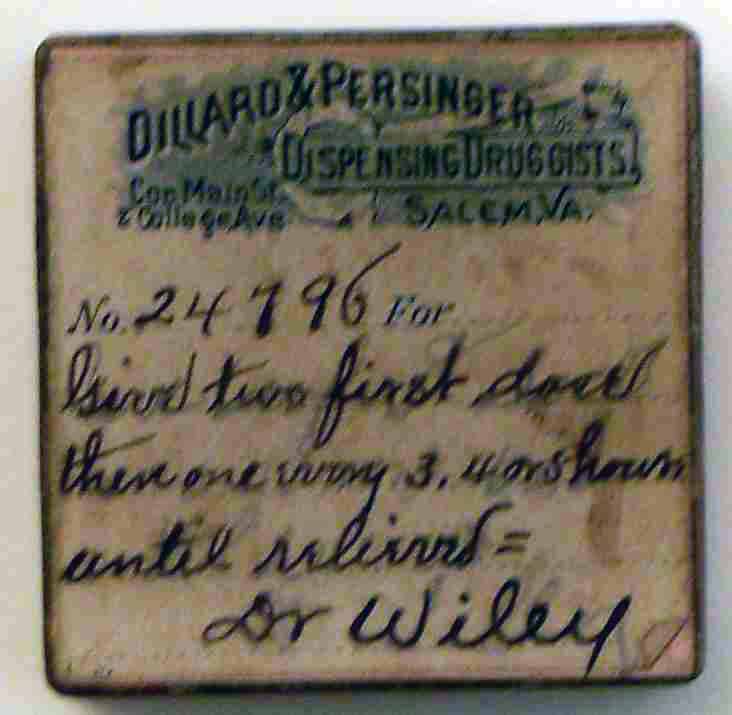 DILLARD & PERSINGER
DISPENSING DRUGGISTS,
Cor. Main St.
& College Ave
SALEM, VA.
No. 24796 For
Give two first dose
then one every 3, 4 or 5 hours
until relieved =
Dr Wiley